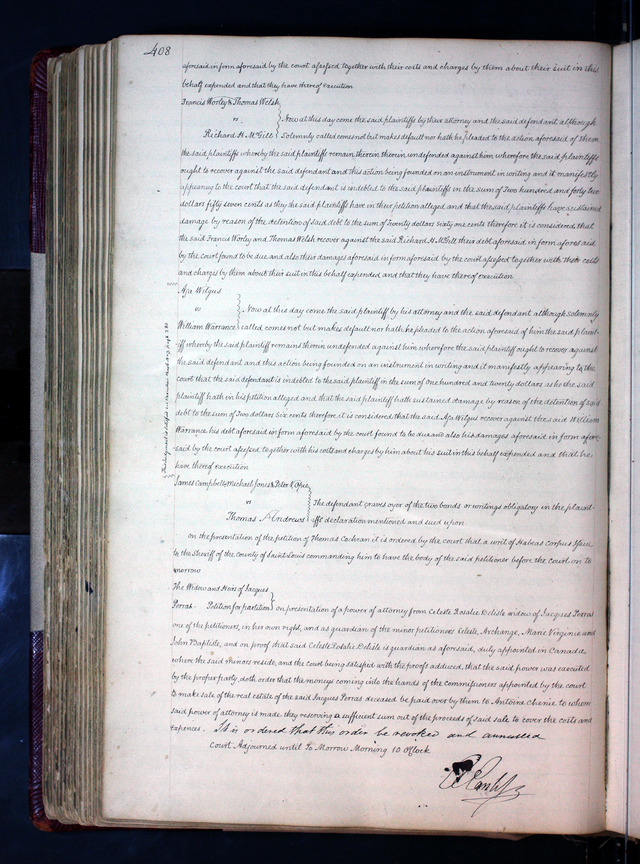 408
aforesaid in form aforesaid by the court assessed together with their costs and charges by them about their suit in this
behalf expended and that they have thereof execution
Francis Worley & Thomas Welsh
vs
Now at this day come the said plaintiffs by their attorney and the said defendant although
Richard H. McGill
Solemnly called comes not but makes default nor hath he pleaded to the action aforesaid of them
the said plaintiffs whereby the said plaintiffs remain therein therein undefended against him wherefore the said plaintiffs
ought to recover against the said defendant and this action being founded on an instrument in writing and it manifestly
appearing to the court that the said defendant is indebted to the said plaintiffs in the sum of Two hundred and forty two
dollars fifty seven cents as they the said plaintiffs have in their petition alleged and that the said plaintiffs have sustained
damage by reason of the detention of said debt to the sum of Twenty dollars Sixty one cents therefore it is considered that
the said Francis Worley and Thomas Welsh recover against the said Richard H. McGill their debt aforesaid in form aforesaid
by the court found to be due and also their damages aforesaid in form aforesaid by the court assessed together with their costs
and charges by them about their suit in this behalf expended and that they have thereof execution
Asa Wilgus
vs
Now at this day come the said plaintiff by his attorney and the said defendant although solemnly
William Warrance
called comes not but makes default nor hath he pleaded to the action aforesaid of him the said plaint-
iff whereby the said plaintiff remains therein undefended against him wherefore the said plaintiff ought to recover against
the said defendant and this action being founded on an instrument in writing and it manifestly appearing to the
court that the said defendant is indebted to the said plaintiff in the sum of one hundred and twenty dollars as he the said
plaintiff hath in his petition alleged and that the said plaintiff hath sustained damage by reason of the detention of said
debt to the sum of Two dollars Six cents therefore it is considered that the said Asa Wilgus recover against the said William
Warrance his debt aforesaid in form aforesaid by the court found to be due and also his damages aforesaid in form afore-
said by the court assessed together with his costs and charges by him about his suit in this behalf expended and that he
have thereof execution
James Campbell, Michael Jones & Peter
vs
The defendant craves oyer of the two bonds or writings obligatory in the plaint-
Thomas Andrews
iffs declaration mentioned and sued upon
on the presentation of the petition of Thomas Cochran it is ordered by the court that a writ of Habeas Corpus Issue
to the Sheriff of the county of Saint Louis commanding him to have the body of the said petitioner before the court on to
morrow
The Widow and Heirs of Jacques
Porras - Petition for partition
on presentation of a power of attorney from Celeste Rosalie Delisle widow of Jacques Porras
one of the petitioners, in her own right, and as guardian of the minor petitioners Celeste, Archange, Marie Virginie and
John Baptiste, and on proof that said Celeste Rosalie Delisle is guardian as aforesaid, duly appointed in Canada
where the said minors reside, and the court being satisfied with the proofs adduced, that the said power was executed
by the proper party, doth order that the moneys coming into the hands of the commissioners appointed by the court
to make sale of the real estate of the said Jacques Porras deceased be paid over by them to Antoine Chenie to whom
said power of attorney is made they reserving a sufficient sum out of the proceeds of said sale to cover the costs and
expences. It is ordered that this order be revoked and annulled
Court Adjourned until To Morrow Morning 10 O'Clock